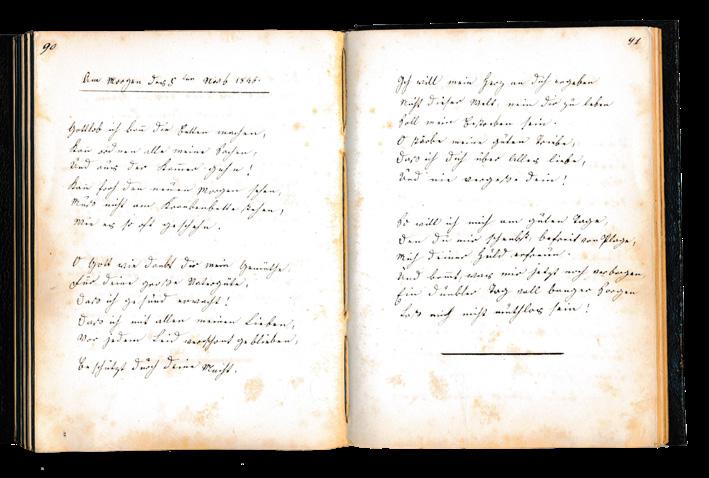 90
Am Morgen des 5ten Novb 1846.
Gottlob ich kann die Betten machen,
Kan ordnen alle meine Sachen,
Und aus der Kamer gehn!
Kan froh den neuen Morgen sehen,
Muß nicht am Krankenbette stehen,
Wie es so oft geschehn.
O Gott wie dankt dir mein Gemüthe
Für deine große Vatergüte,
Daß ich gesund erwacht!
Daß ich mit allen meinen Lieben,
Vor jedem Leid verschont geblieben,
Beschützt durch deine Macht.
91
Ich will mein Herz an dich ergeben
Nicht dieser Welt, nein dir zu leben
Soll mein Bestreben sein.
O stärke meine guten Triebe,
Daß ich dich über Alles liebe,
Und nie vergesse dein!
So will ich mich am guten Tage,
Den du mir schenkst, befreit von Plage,
Mich deiner Huld erfreun.
Und kommt, was mir jetzt noch verborgen
Ein dunkler Tag voll banger Sorgen
Laß mich nicht muthlos sein!